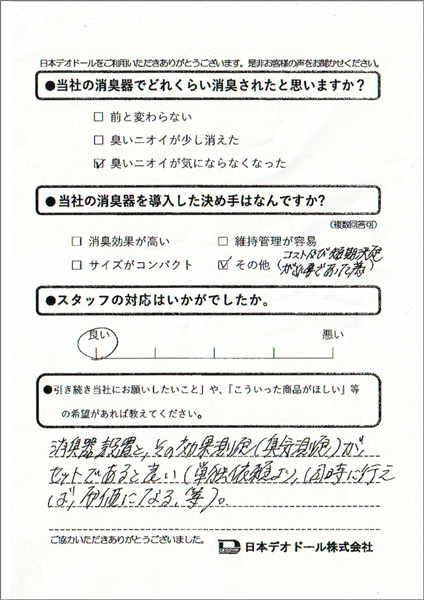 日本デオドールをご利用いただきありがとうございます。是非お客様の声をお聞かせください。
●当社の消臭器でどれくらい消臭されたと思いますか？
□ 前と変わらない
□ 臭いニオイが少し消えた
☑ 臭いニオイが気にならなくなった
●当社の消臭器を導入した決め手はなんですか？
（複数回答可）
□ 消臭効果が高い □ 維持管理が容易
□ サイズがコンパクト ☑ その他（コスト及び短期決
であった為）
●スタッフの対応はいかがでしたか。
良い 悪い
●引き続き当社にお願いしたいこと」や、「こういった商品がほしい」等
の希望があれば教えてください。
消臭器設置と、その効果測定（臭気測定）が
セットであると良い（単独依頼より、同時に行え
ば、安価になる、等）。
ご協力いただきありがとうございました。 日本デオドール株式会社